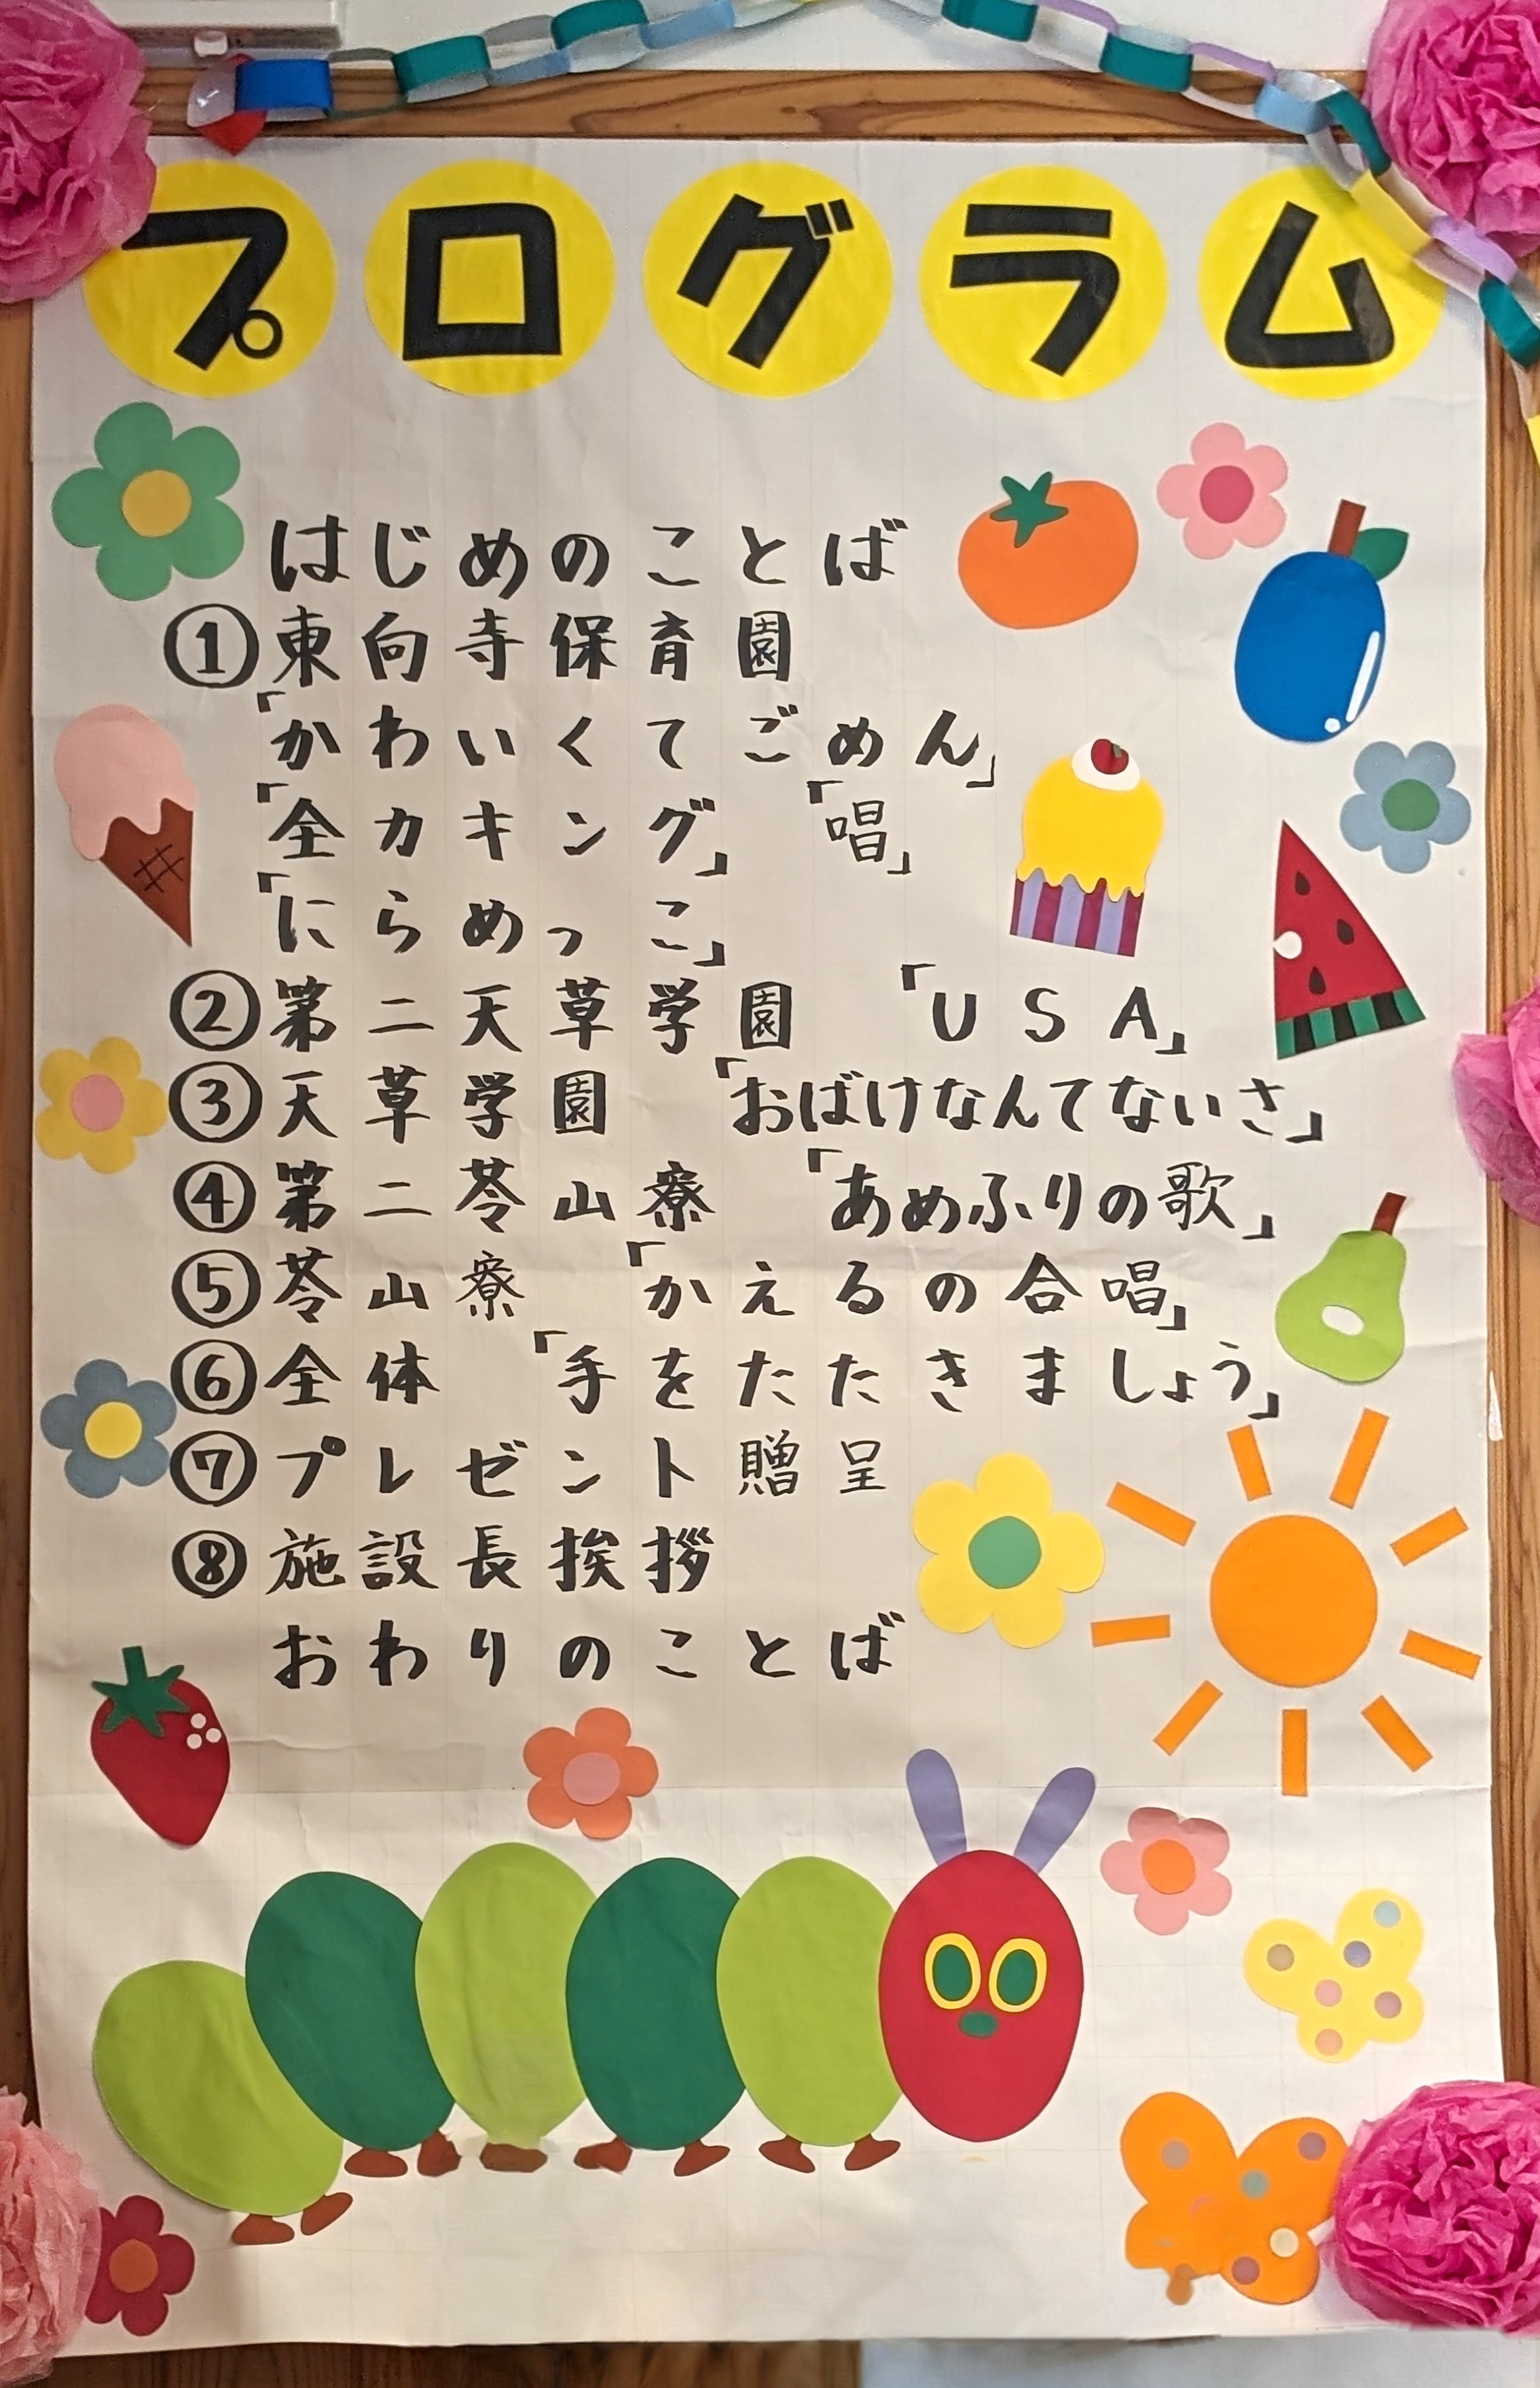 プログラム
はじめのことば
①東向寺保育園
「かわいくてごめん」
「全カキング」 「唱」
「にらめっこ」
②第二天草学園 「USA」
③天草学園 「おばけなんてないさ」
④第二苓山寮 「あめふりの歌」
⑤苓山寮 「かえるの合唱」
⑥全体 「手をたたきましょう」
⑦プレゼント贈呈
⑧施設長挨拶
おわりのことば